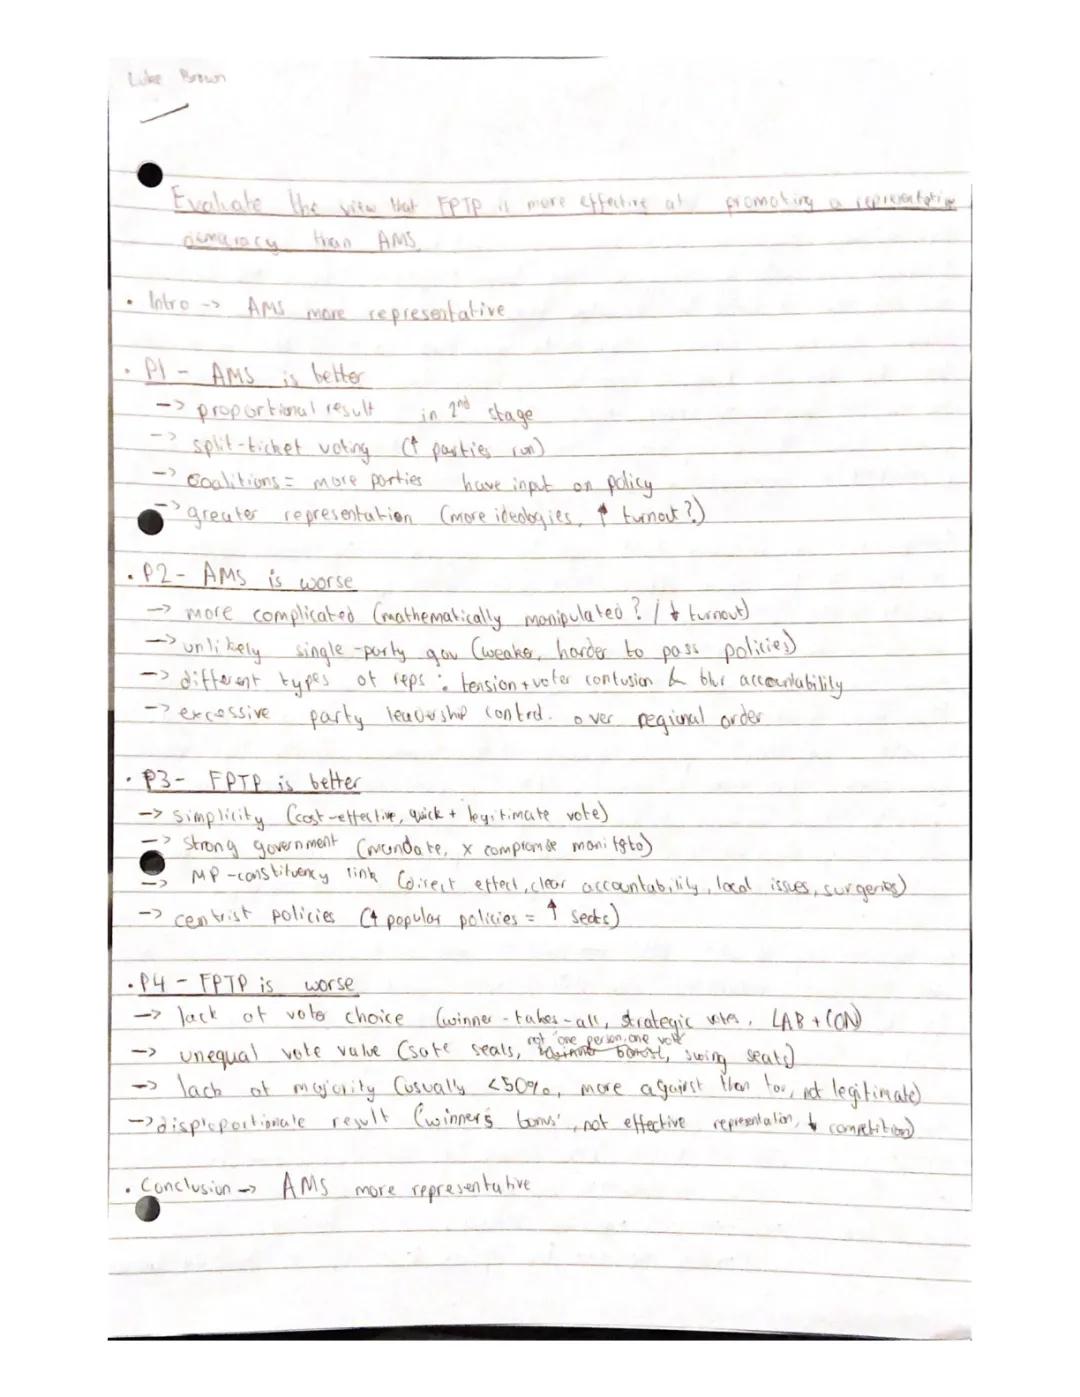 Luke Brown
Evaluate the view that FPTP is more effective at promoting a representative
democracy than AMS.
• Intro -> AMS more representative
• P1 - AMS is better
-> proportional result in 2nd stage
-> split-ticket voting (↑ parties run)
-> coalitions = more parties have input on policy
-> greater representation (more ideologies, ↑ turnout?)
• P2 - AMS is worse
-> more complicated (mathematically manipulated? / ↓ turnout)
-> unlikely single-party gov (weaker, harder to pass policies)
-> different types of reps : tension + voter confusion & blur accountability
-> excessive party leadership control over regional order
• P3 - FPTP is better
-> simplicity (cost-effective, quick + legitimate vote)
-> strong government (mandate, x compromise manifesto)
-> MP-constituency link (direct effect, clear accountability, local issues, surgeries)
-> centrist policies (↑ popular policies = ↑ seats)
• P4 - FPTP is worse
-> lack of voter choice (winner-takes-all, strategic votes, LAB + CON)
-> unequal vote value (safe seats, not 'one person, one vote', swing seats)
-> lack of majority (usually <50%, more against than for, not legitimate)
-> disproportionate result (winner's bonus', not effective representation, ↓ competition)
• Conclusion -> AMS more representative